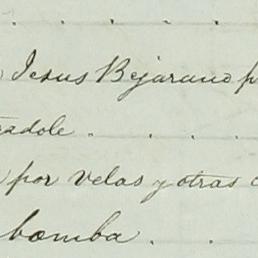 Jesus Bejarano p
adole . . .
por velas y otras
bomba . .